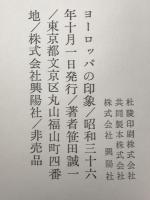 ヨーロッパの印象／昭和三十六
年十月一日発行／著者笹田誠一
／東京都文京区丸山福山町四番
地／株式会社興陽社／非売品
杜陵印刷株式会社
共同製本株式会社
株式会社　興陽社